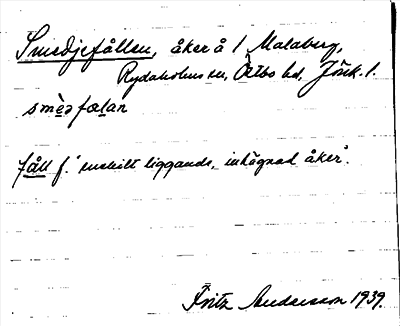 Smedjefållen, åker å 1 Malaberg,
Rydaholms sn, Östbo hd, Jönk. l.
smèdfωlan
fåll f. "enskilt liggande, inhägnad åker".
Fritz Andersson 1939.